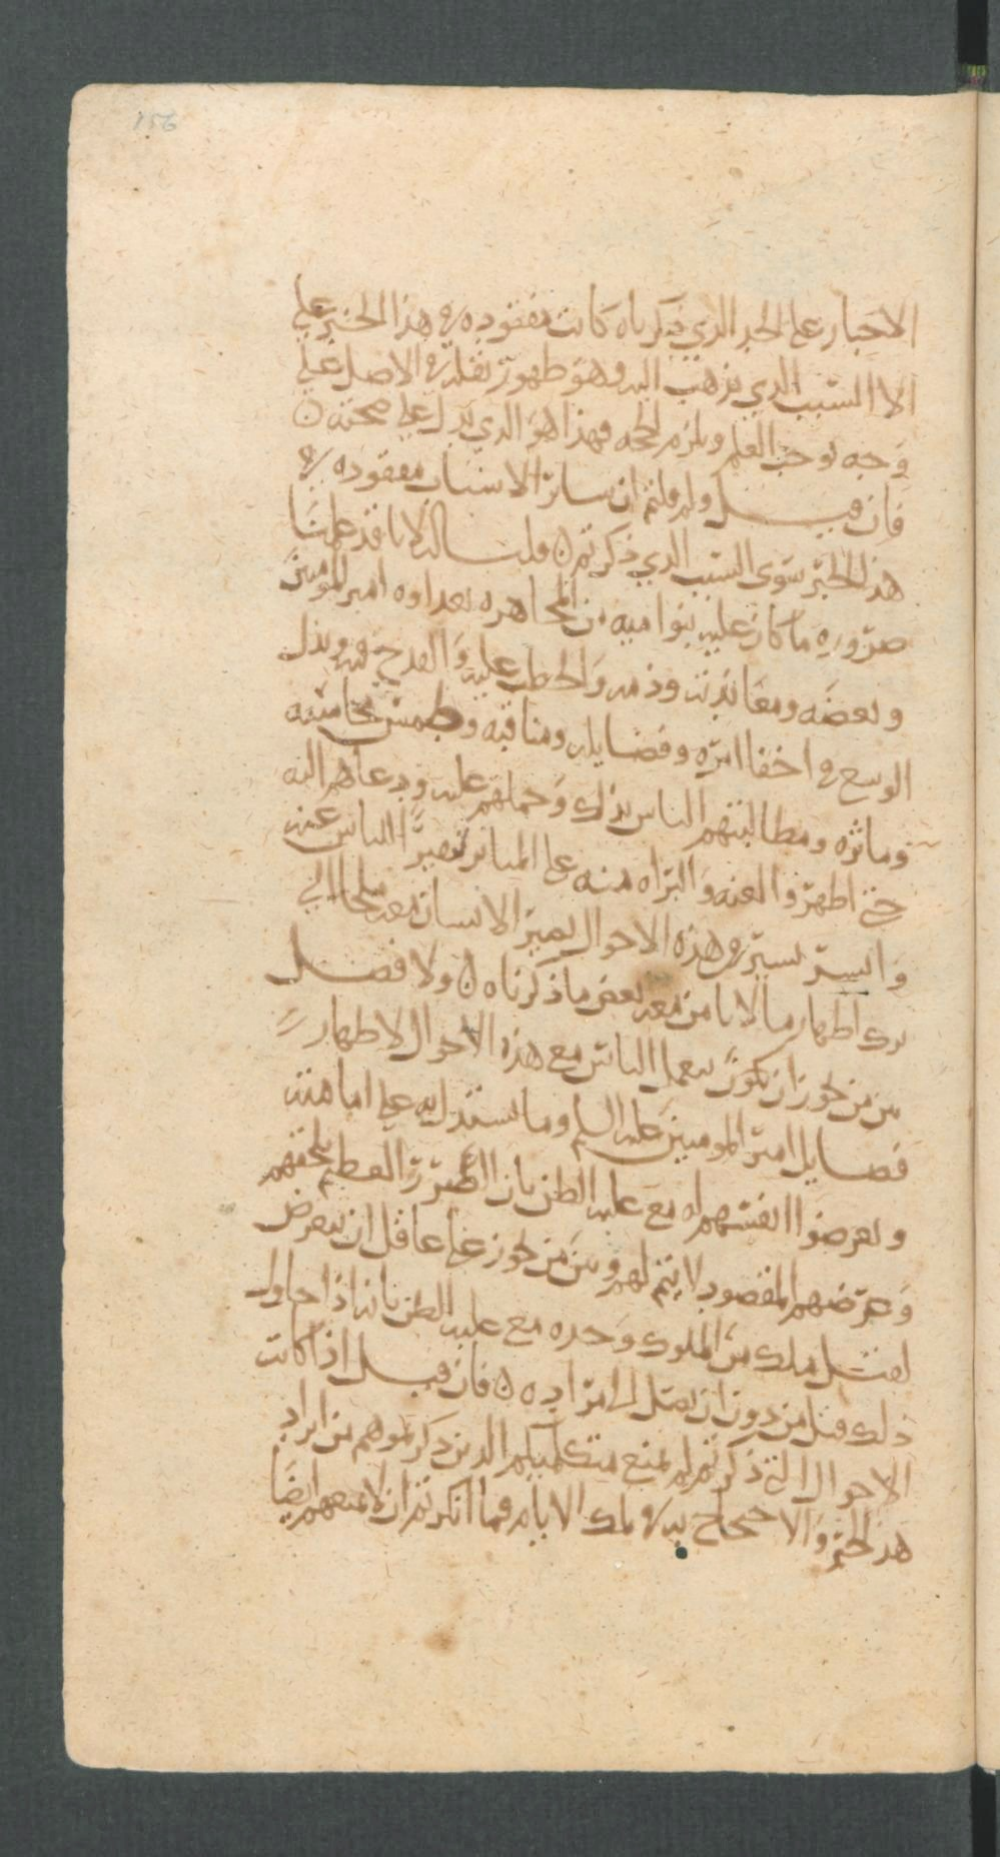 156
الاخبار على الحد الذي ذكرناه كانت مفقوده في هذا الخبر على
الا السبب الذي نذهب اليه وهو ظهور نقله في الاصل على
وجه يوجب العلم ويلزم الحجه فهذا هو الذي يدل على صحته ن
فان قيل ولم قلتم ان سائر الاسباب مفقوده في
هذا الخبر سوى السبب الذي ذكرتم ن قلنا له لانا قد علمنا
ضروره ما كان عليه بنوا اميه من المجاهره بعداوه امير المومنين
وبغضه ومعاندته وذمه والحط عليه والقدح فيه وبذل
الوسع في اخفا امره وفضايله ومناقبه وطمس محاسنه
وماثره ومطالبتهم الناس بذلك وحملهم عليه ودعاهم اليه
حتى اظهروا لعنه والبراه منه على المنابر الناس عنه
وايسر يسير من هذه الاحوال يصير الانسان معه ملجا الى
ترك اظهار ما لا يامن معه بعض ما ذكرناه ن ولا فصل
بين من يجوز ان يكون الناس مع هذه الاحوال لاظهار
فضايل امير المومنين عليه السلم وما يستدل به على امامته
وتعرضوا انفسهم له مع غلبه الظن بان الضرر العظيم يلحقهم
وغرضهم المقصود لا يتم لهم وبين من يجوز على عاقل ان يتعرض
لقتل ملك من الملوك وحده مع غلبه الظن بانه اذا حاول
ذلك قتل من دون ان يصل الى مراده ن فان قيل اذا كانت
الاحوال التي ذكرتم لم تمنع متكلميكم الذين ذكرتموهم من ايراد
هذا الخبر والاحتجاج به في تلك الايام فما انكرتم ان لا تمنعهم ايضا